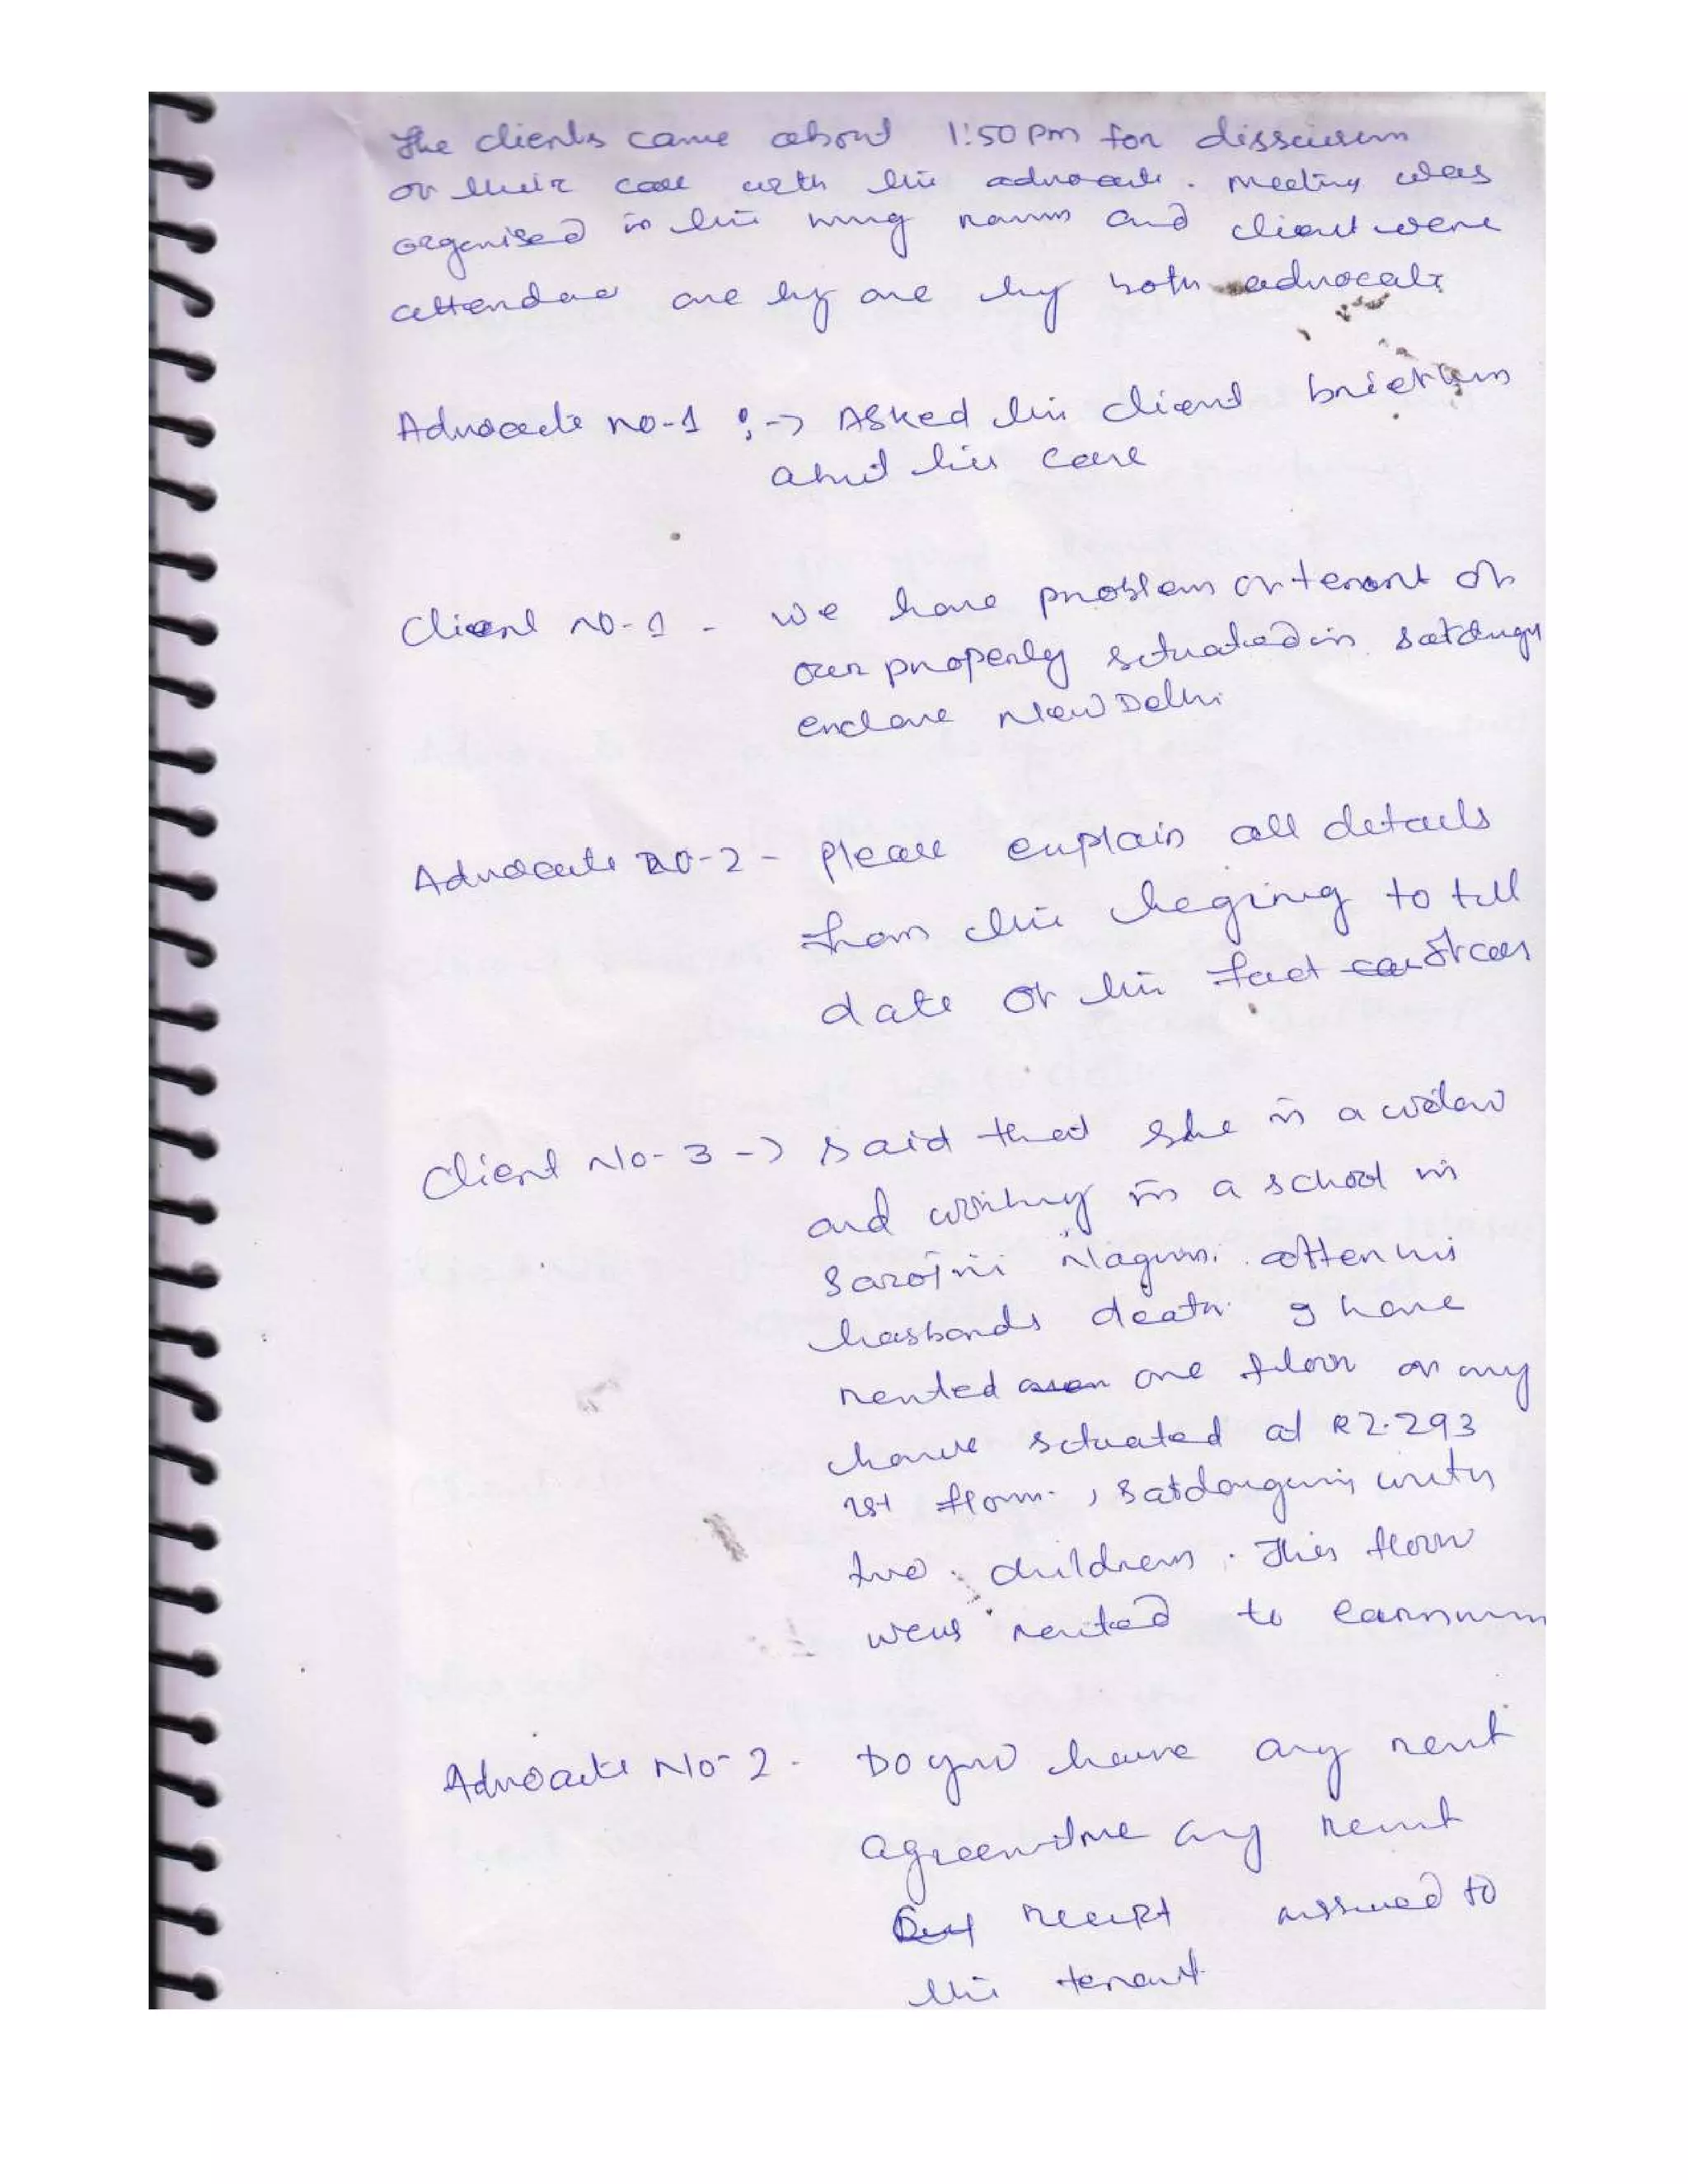 The clients came about 1:50 pm for disscussion
of their case with the advocate. Meeting was
organised in the living room and client were
attended one by one by both advocate
Advocate no-1 :-> Asked the client brief
about his case
Client no-1 - we have problem of tenant of
our property situated in
enclave New Delhi
Advocate no-2 - please explain all details
from the begining to till
date of the fact
Client No-3 -> said that she is a widow
and working in a school in
Sarojini Nagar. after his
husbands death I have
rented one floor of my
house situated at RZ-293
1st floor, with
two childrens. This floor
was rented to
Advocate No-2 - Do you have any rent
any rent
receipt issued to
the tenant